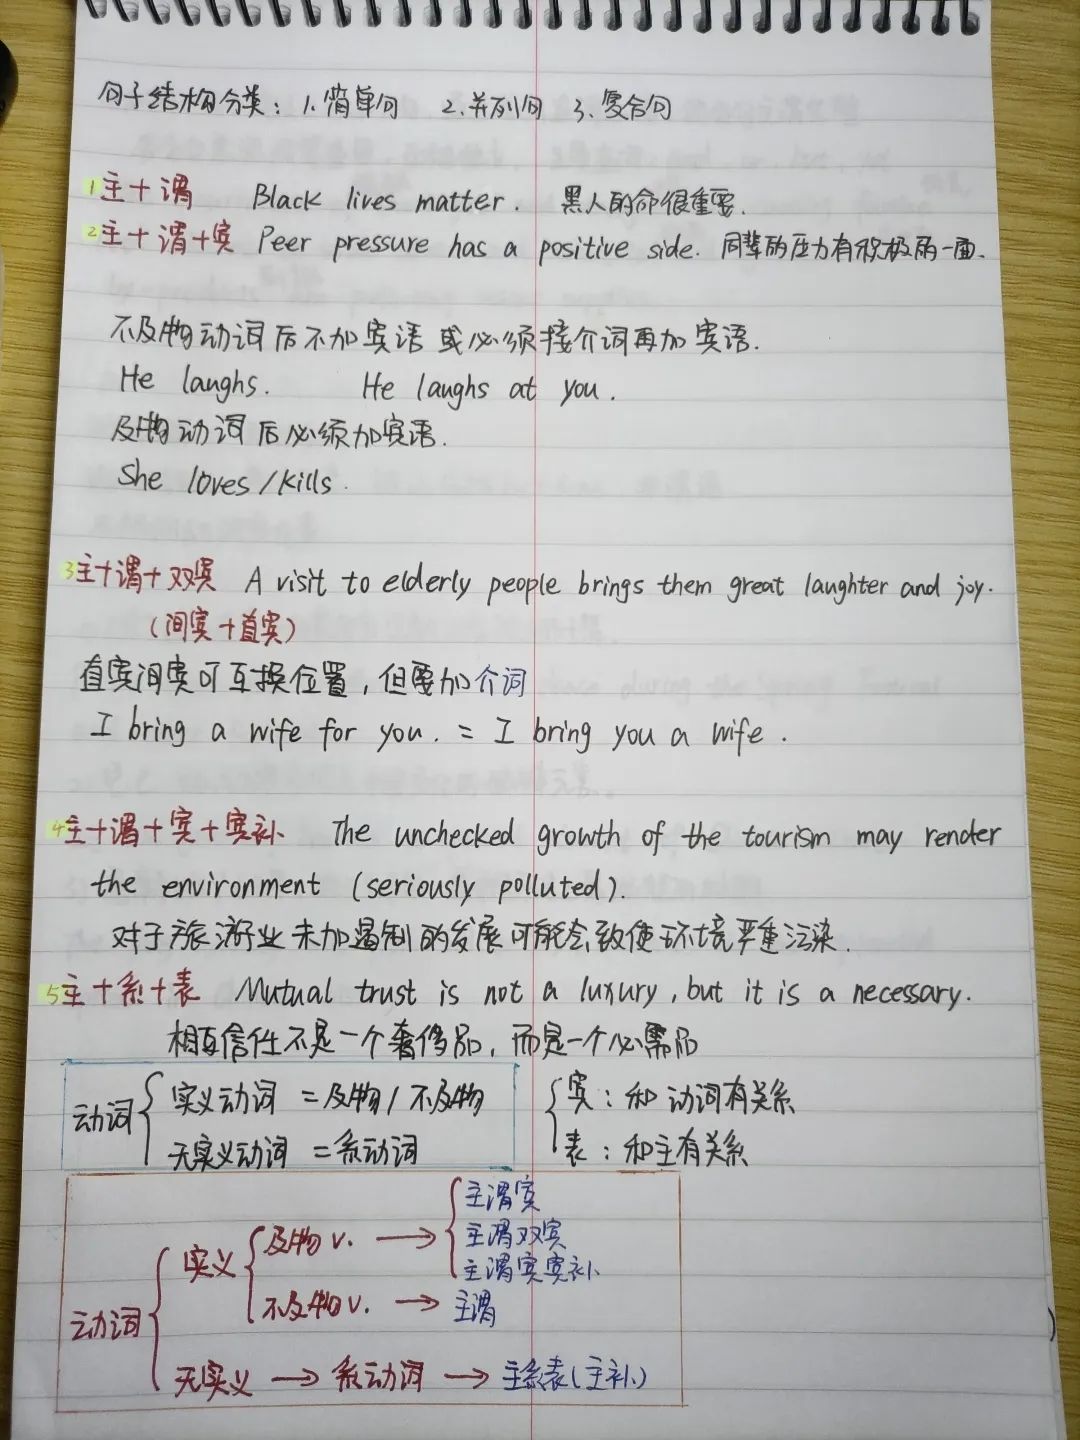 句子结构分类：1.简单句 2.并列句 3.复合句
1主+谓 Black lives matter. 黑人的命很重要.
2主+谓+宾 Peer pressure has a positive side. 同辈的压力有积极的一面.
不及物动词后不加宾语或必须接介词再加宾语.
He laughs. He laughs at you.
及物动词后必须加宾语.
She loves/kills.
3主+谓+双宾 A visit to elderly people brings them great laughter and joy.
(间宾+直宾)
直宾间宾可互换位置,但要加介词
I bring a wife for you. = I bring you a wife.
4主+谓+宾+宾补 The unchecked growth of the tourism may render
the environment (seriously polluted).
对于旅游业未加遏制的发展可能会致使环境严重污染.
5主+系+表 Mutual trust is not a luxury, but it is a necessary.
相互信任不是一个奢侈品,而是一个必需品
动词{实义动词=及物/不及物 {宾:和动词有关系
无实义动词=系动词 表:和主有关系
主谓宾
实义{及物v. → {主谓双宾
主谓宾宾补
动词{ 不及物v. → 主谓
无实义 → 系动词 → 主系表(主补)